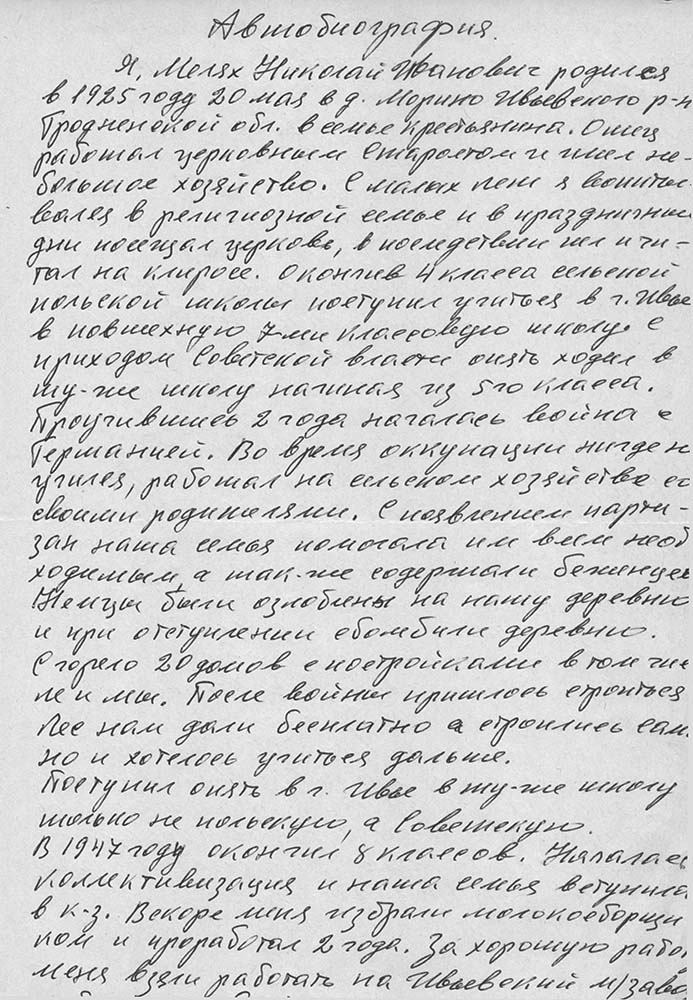 Автобиография.
Я, Мелях Николай Иванович родился
в 1925 году 20 мая в д. Морино Ивьевского р-н
Гродненской обл. в семье крестьянина. Отец
работал церковным старостом и имел не-
большое хозяйство. С малах лет я воспиты-
вался в религиозной семье и в праздничныи
дни посещал церковь, в последствии пел и чи-
тал на клиросе. Окончив 4 класса сельской
польской школы поступил учиться в г. Ивье
в повшехную 7-ми классовую школу. С
приходом Советской власти опять ходил в
ту-же школу начиная из 5го класса.
Проучившись 2 года началась война с
Германией. Во время оккупации нигде н
учился, работал на сельском хозяйстве со
своими родителями. С появлением парти-
зан наша семья помогала им всем необ
ходимым, а так-же содержали беженцев
Немцы были озлоблены на нашу деревню
и при отступлении обомбили деревню.
Сгорело 20 домов с постройками в том чис
ле и мы. После войны пришлось строиться
лес нам дали бесплатно а строились сам.
но и хотелось учиться дальше.
Поступил опять в г. Ивье в ту-же школу
только не польскую, а Советскую.
В 1947 году окончил 8 классов. Началась
коллективизация и наша семья вступила
в к-з. Вскоре меня избрали молокосборщи
ком и проработал 2 года. За хорошую рабо
меня взяли работать на Ивьевский м/заво